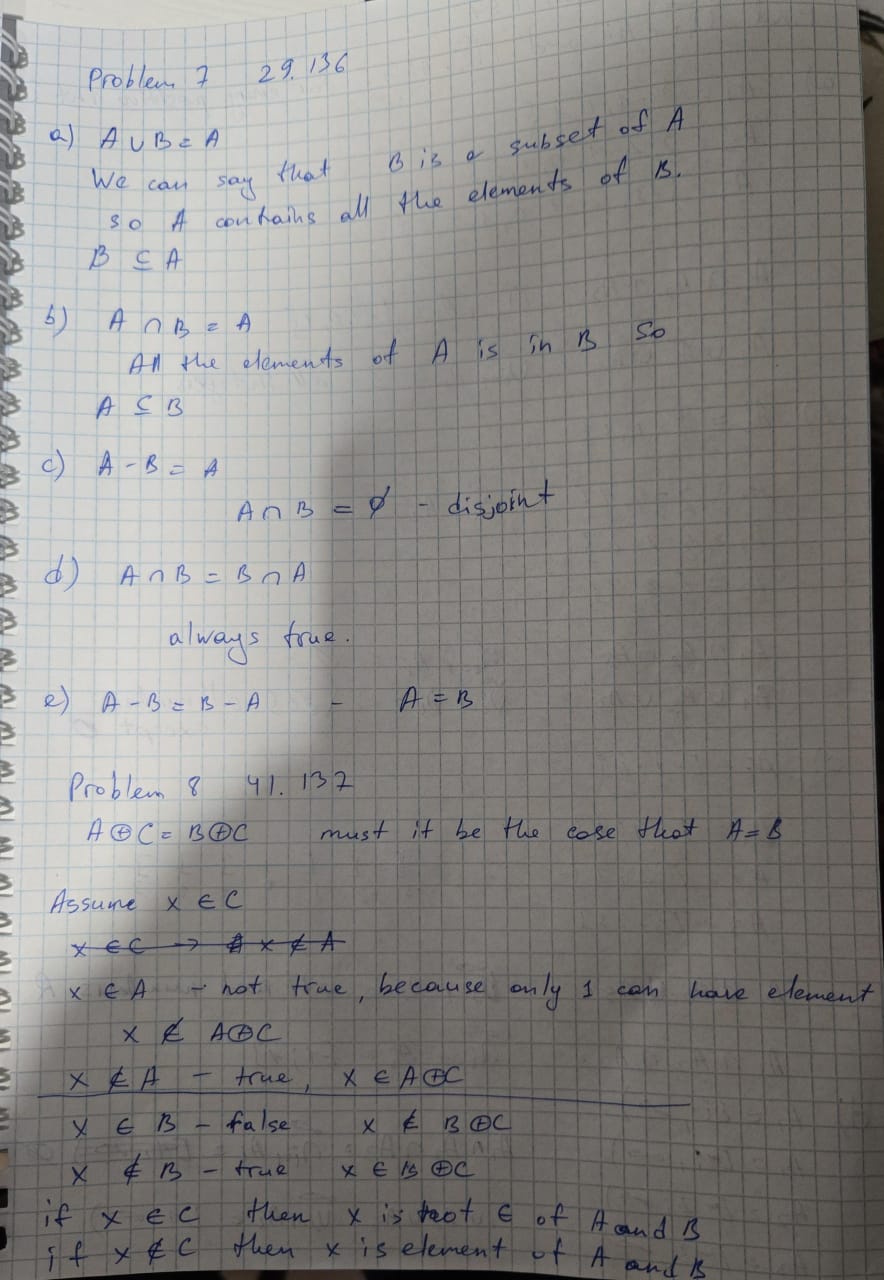 Problem 7 29.136
a) A ∪ B = A
We can say that B is a subset of A
so A contains all the elements of B.
B ⊆ A
b) A ∩ B = A
All the elements of A is in B so
A ⊆ B
c) A - B = A
A ∩ B = ∅ - disjoint
d) A ∩ B = B ∩ A
always true.
e) A - B = B - A - A = B
Problem 8 41. 137
A ⊕ C = B ⊕ C must it be the case that A = B
Assume x ∈ C
x ∈ C → x ∉ A
x ∈ A - not true, because only 1 can have element
x ∉ A ⊕ C
x ∉ A - true, x ∈ A ⊕ C
x ∈ B - false x ∉ B ⊕ C
x ∉ B - true x ∈ B ⊕ C
if x ∈ C then x is not ∈ of A and B
if x ∉ C then x is element of A and B